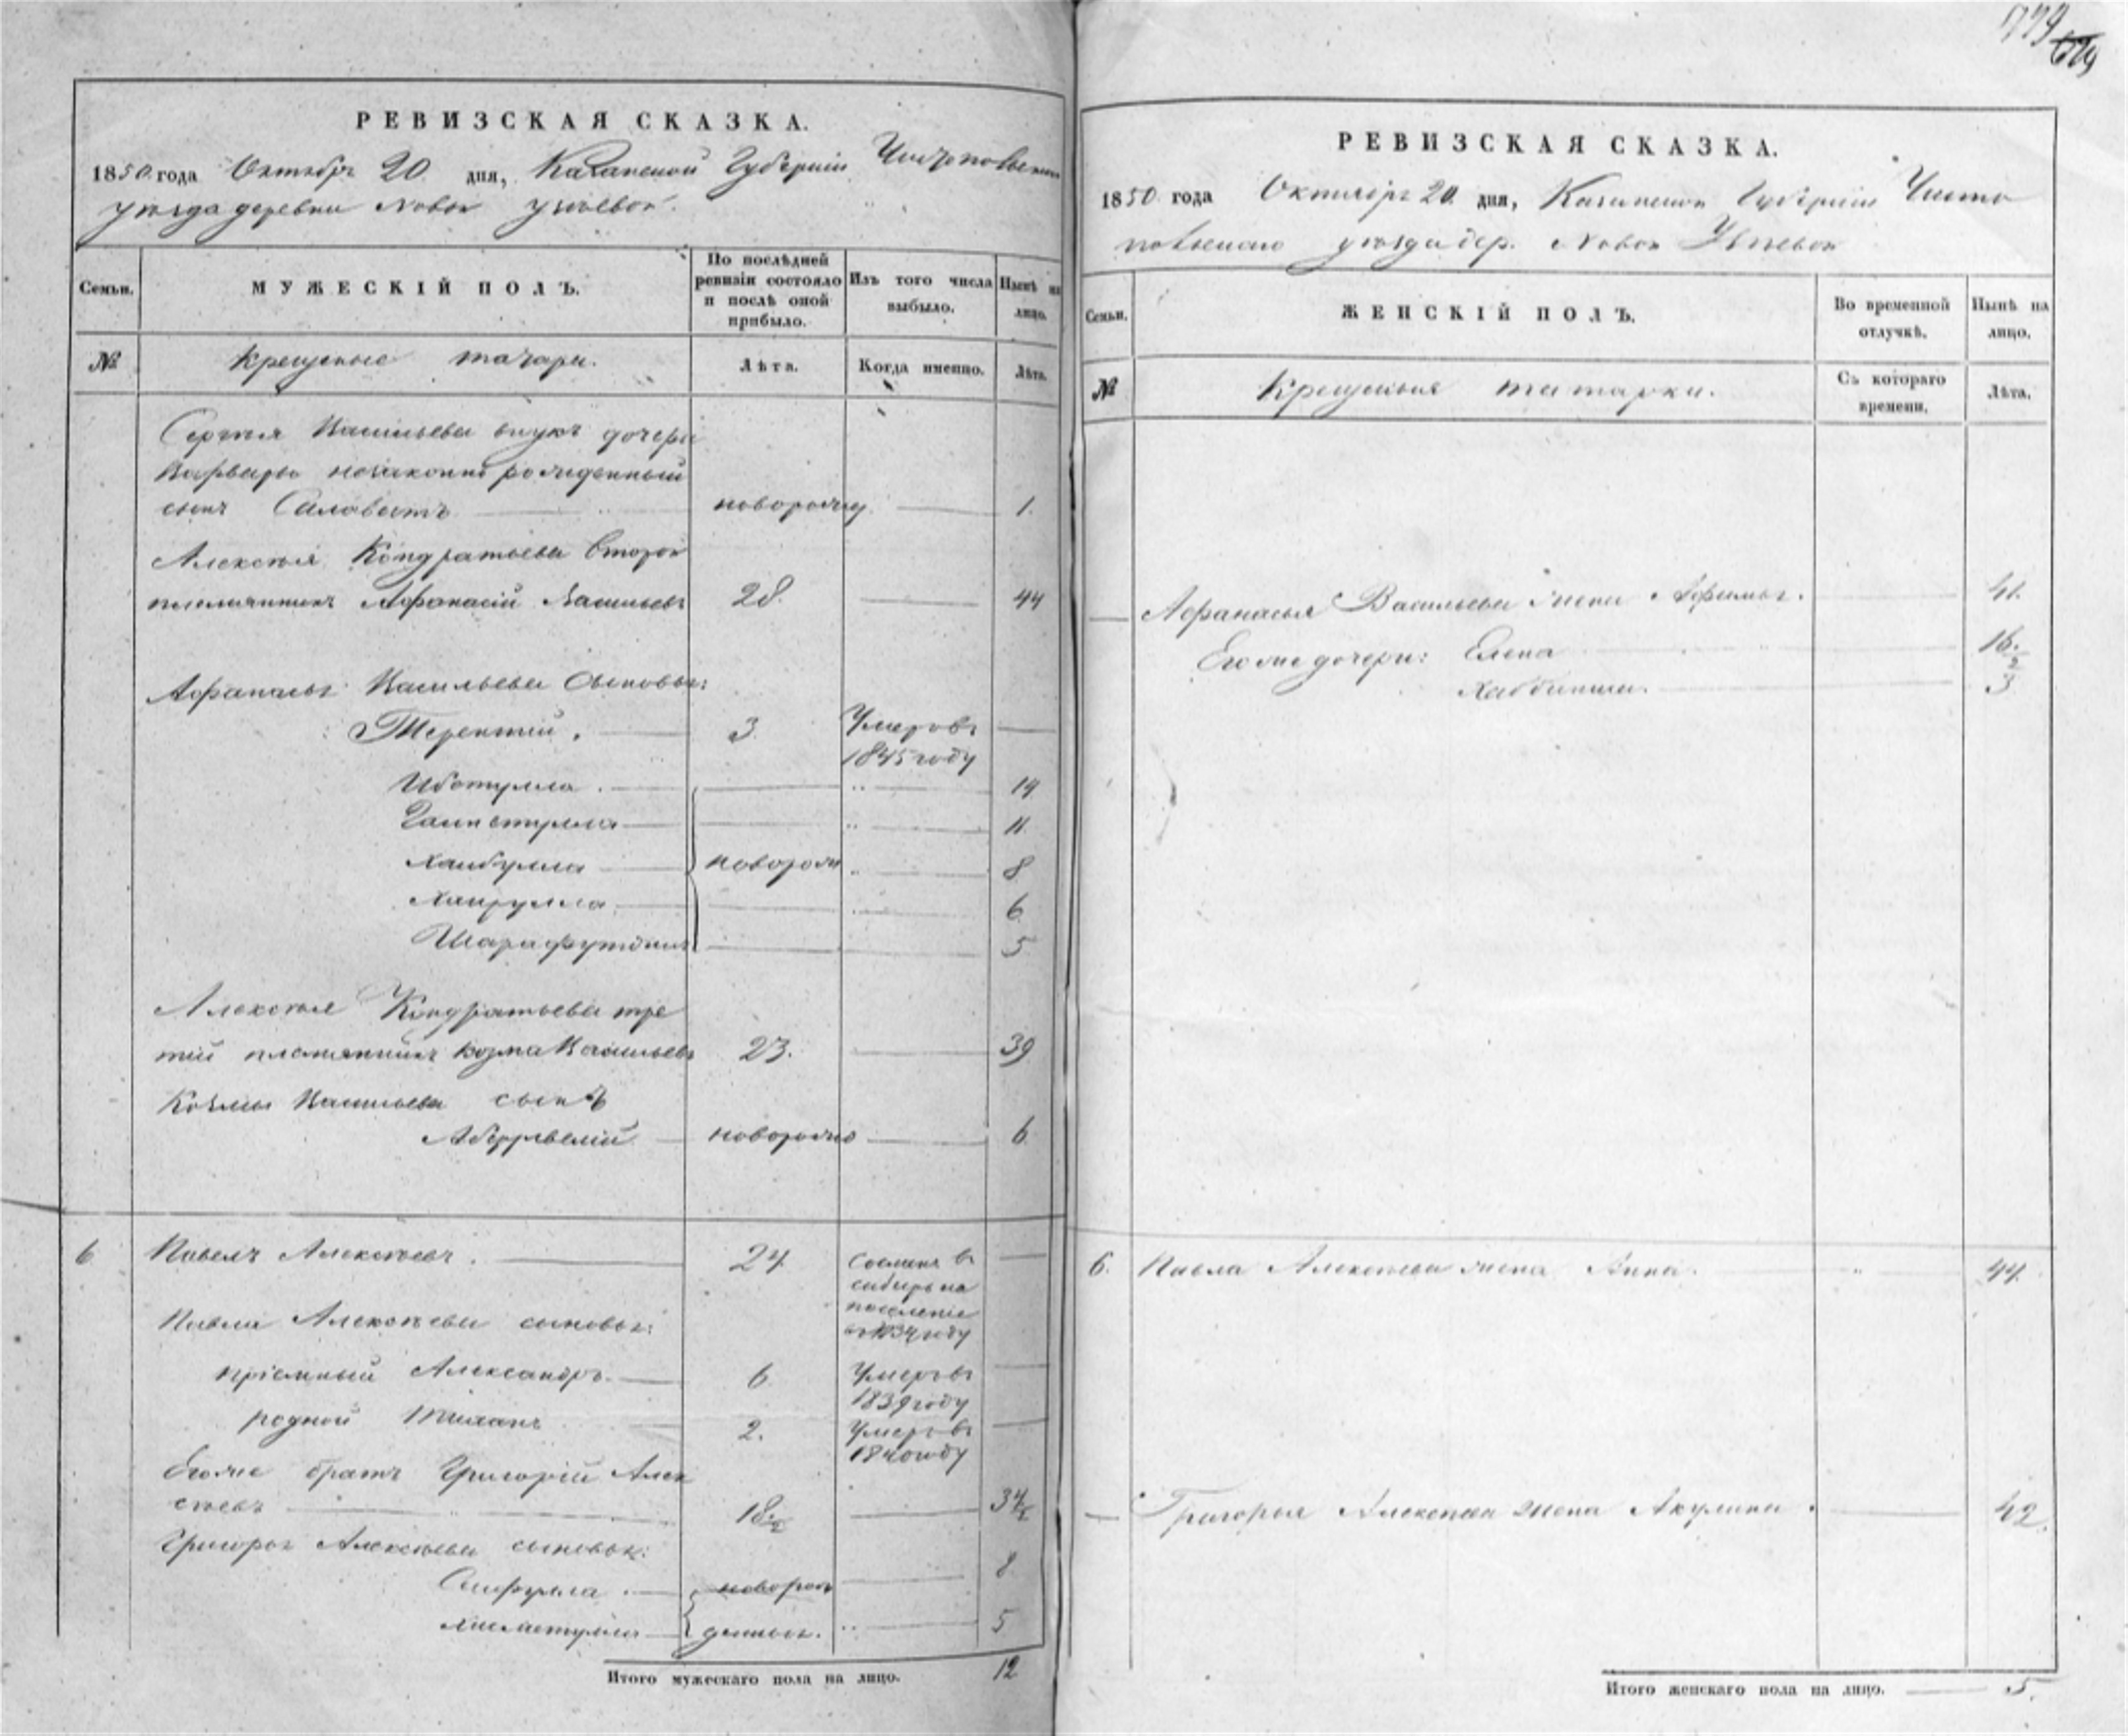 779
629
РЕВИЗСКАЯ СКАЗКА.
1850 года Октября 20 дня, Казанской Губернии Чистопольскаго
уѣзда деревни Новой
Семьи.
МУЖЕСКІЙ ПОЛЪ.
По послѣдней ревизіи состояло и послѣ оной прибыло.
Изъ того числа выбыло.
Нынѣ на лицо.
№
Крещеные татары.
Лѣта.
Когда именно.
Лѣта.
Сергѣя Васильева внукъ дочери
Варвары незаконно рожденный
сынъ новорожд. 1.
Алексѣя Кондратьева второй
племянникъ Афанасій Васильевъ 28. 44
Афанасья Васильева сыновья:
Терентій. 3. Умеръ въ
1845 году
14
11.
Хаибулла новорож 8
Хаирулла 6.
Шарафутдинъ 5
Алексѣя Кондратьева тре
тій племянникъ Козма Васильевъ 23. 39
Козмы Васильева сынъ
новорожд 6.
6 Павелъ Алексѣевъ. 24. Сосланъ въ
сибирь на
поселеніе
в 1834 году
Павла Алексѣева сыновья:
пріемный Александръ. 6. Умеръ въ
1839 году
родной 2. Умеръ въ
1840 году
Его же братъ Григорій Алек
сѣевъ 18½ 34½
Григорья Алексѣева сыновья:
новорож 8
денные. 5
Итого мужескаго пола на лицо. 12
РЕВИЗСКАЯ СКАЗКА.
1850 года Октября 20 дня, Казанской Губерніи Чисто
польскаго уѣзда дер. Новой
Семьи.
ЖЕНСКІЙ ПОЛЪ.
Во временной отлучкѣ.
Нынѣ на лицо.
№
Крещеныя татарки.
Съ котораго времени.
Лѣта.
Афанасья Васильева жена 41.
Его же дочери: Елена 16.½
3
6. Павла Алексѣева жена Анна. 44.
Григорья Алексѣева жена Акулина. 42.
Итого женскаго пола на лицо. 5.